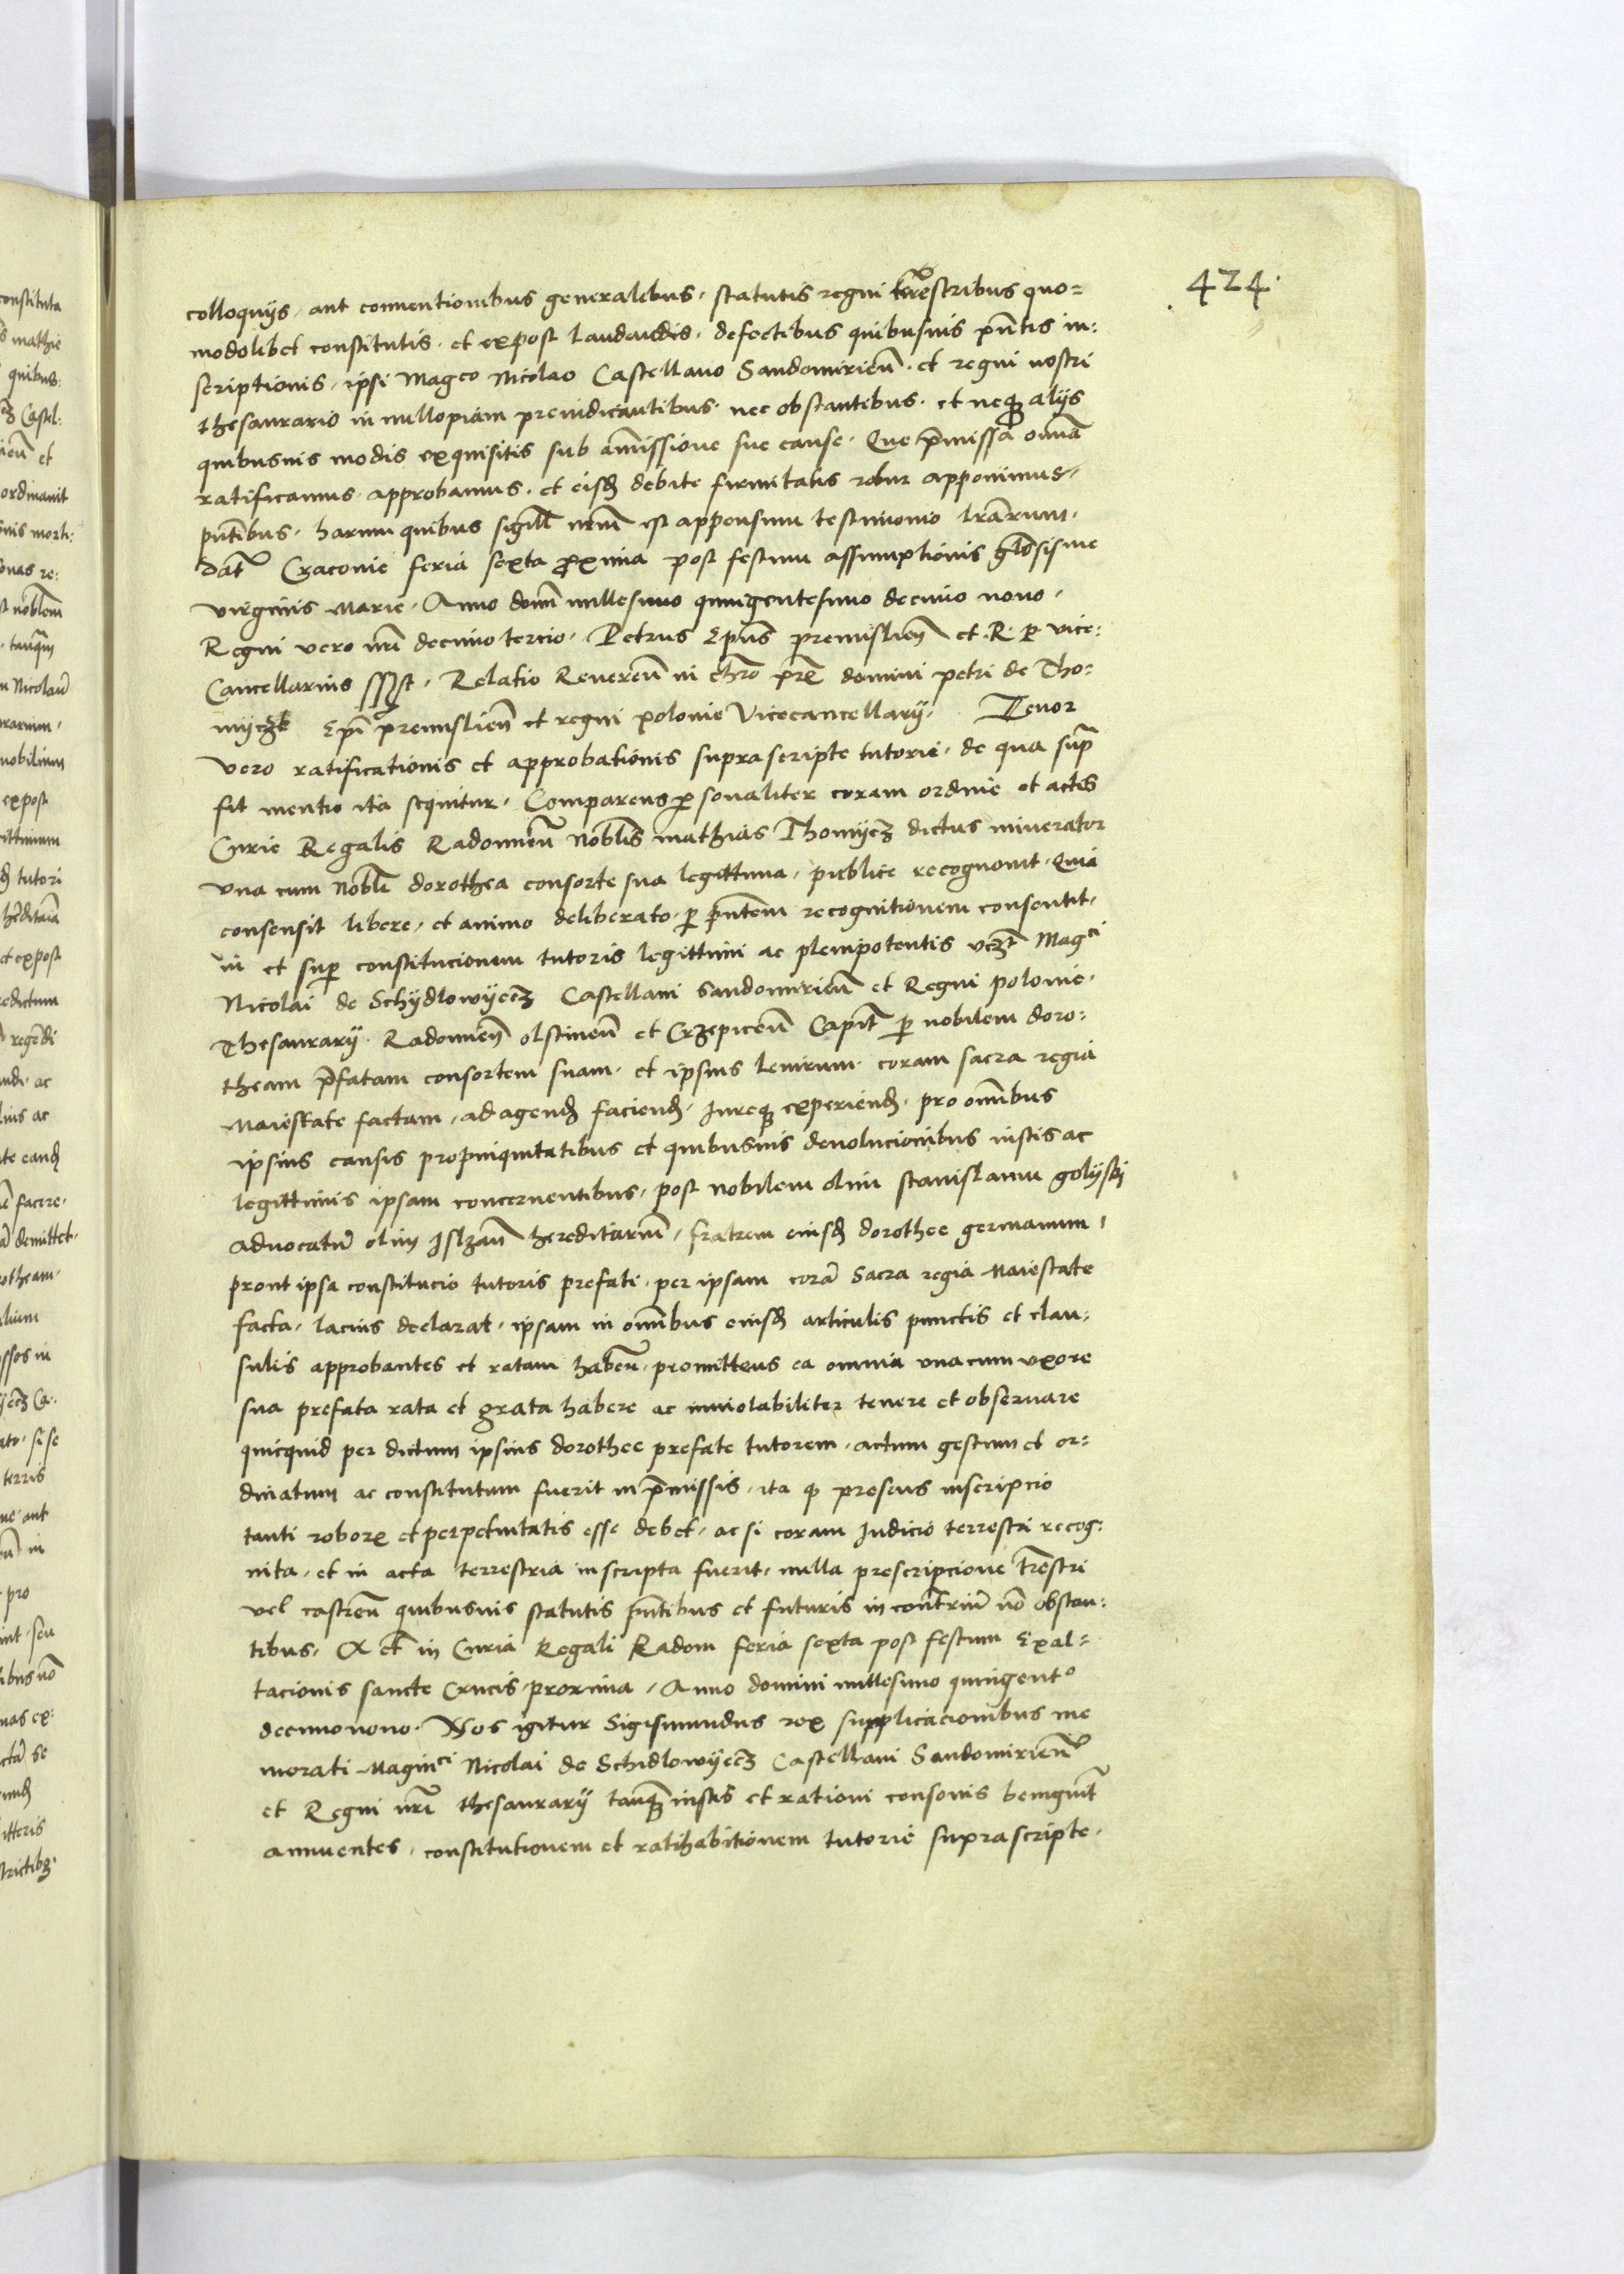 424.
colloquijs, aut conventionibus generalibus, statutis regni trrestribus quo=
modolibet constitutis. et expost laudandis. defectibus quibusuis pñtis in:
scriptionis, ipsi Magco Nicolao Castellano Sandomirieñ. et regni nostri
thesaurario in nullo preiudicantibus. nec obstantibus. et neq3 alijs
quibusuis modis exquisitis sub amissione sue cause. Que p̄missa om̄ia
ratificamus approbamus. et eisd3 debite firmitatis robur apponimus,
pñtibus. harum quibus sigill nr̄m est appensum testimonio lr̄arum.
dat̃ Cracouie feria sexta proxima post festum assumptionis gl̄osissime
virginis Marie. Anno domi millesimo quingentesimo decimo nono,
Regni vero nr̄i decimo tercio. Petrus Ep̄us premislieñ et. R. P. vice:
Cancellarius sspt. Relatio Reuereñ in chr̄o pr̄e domini petri de Tho:
mijczk Ep̄i premislieñ et regni polonie Vicecancellarij. Tenor
vero ratificationis et approbationis suprascripte tutorie. de qua sup̄
fit mentio ita sequitur. Comparens personaliter coram ordine et actis
Curie Regalis Radomieñ Nobl̄is mathias Thomijcz dictus minerator
vna cum Nobl̄i dorothea consorte sua legittima, publice recognouit. Quia
consensit libere, et animo deliberato. p̱ p̄ntem recognitionem consentit.
in et sup̱ constitucionem tutoris legittimi ac plenipotentis vcz̄t Magci
Nicolai de Schijdlowijecz Castellani Sandomirieñ et Regni polonie.
Thesaurarij. Radomieñ olstineñ et Crzepiceñ Capit̄ p̱ nobilem doro:
theam p̄fatam consortem suam. et ipsius leuirum. coram sacra regia
Maiestate factam, ad agend3 faciend3. Jureq3 experiend3. pro om̄ibus
ipsius causis propinquitatibus et quibusuis deuolucionibus iustis ac
legittimis ipsam concernentibus, post nobilem olim stanislaum golijski
aduocatū olim Jslzañ hereditariū, fratrem eiusd3 dorothee germanum,
prout ipsa constitucio tutoris prefati. per ipsam corā Sacra regia Maiestate
facta, lacius declarat. ipsam in om̄ibus eiusd3 articulis punctis et clau:
sulis approbantes et ratam habeñ, promittens ea omnia vna cum vxore
sua prefata rata et grata habere ac inuiolabiliter tenere et obseruare
quicquid per dictum ipsius dorothee prefate tutorem. actum gestum et or=
dinatum ac constitutum fuerit in p̄missis, ita q3 presens inscripcio
tanti robor3 et perpetuitatis esse debet, ac si coram Judicio terrestri recog:
nita, et in acta terrestria inscripta fuerit. nulla prescripcione tr̄estri
vel castreñ quibusuis statutis p̄ntibus et futuris in contr̄iū nō obstan:
tibus. Act̄ in Curia Regali Radom feria sexta post festum Exal=
tacionis sancte Crucis proxima. Anno domini millesimo quingento
decimonono. Nos igitur Sigismundus rex supplicacionibus me
morati Magnici Nicolai de Schidlowijecz Castellani Sandomirieñ
et Regni nr̄i thesaurarij tanq3 iustis et rationi consonis benignit̄
annuentes, constitutionem et ratihabitionem tutorie suprascripte.